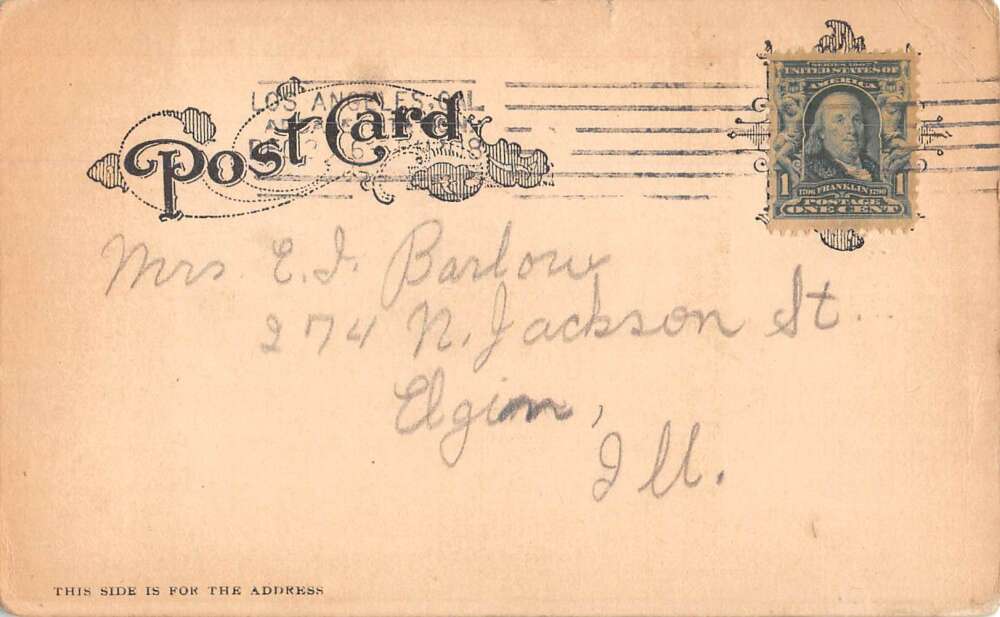 Post Card
LOS ANGELES, CAL
SERIES 1902
UNITED STATES OF
AMERICA
1 1706 FRANKLIN 1790 1
POSTAGE
ONE CENT
Mrs E. J. Barlow
274 N. Jackson St.
Elgin,
Ill.
THIS SIDE IS FOR THE ADDRESS